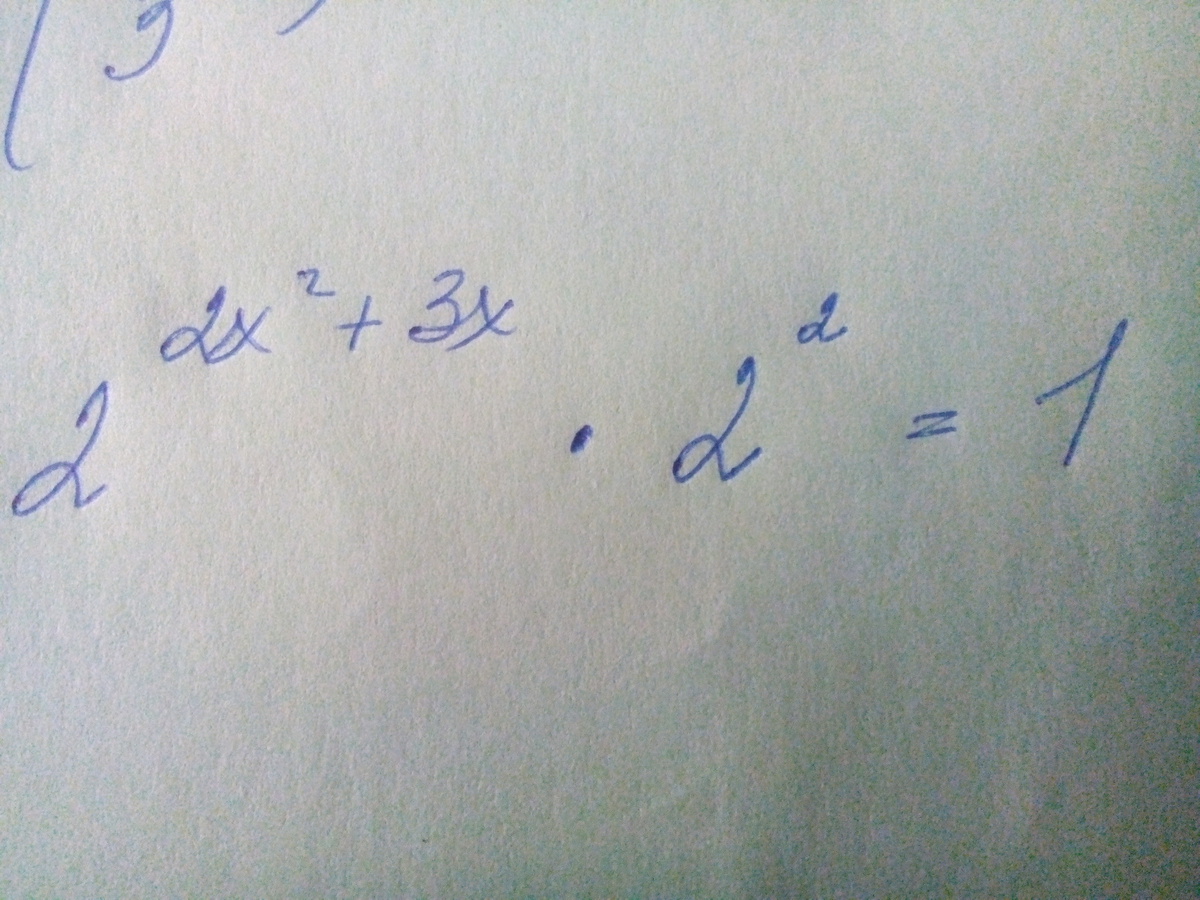 ( 3
2^{2x^2 + 3x} · 2^2 = 1